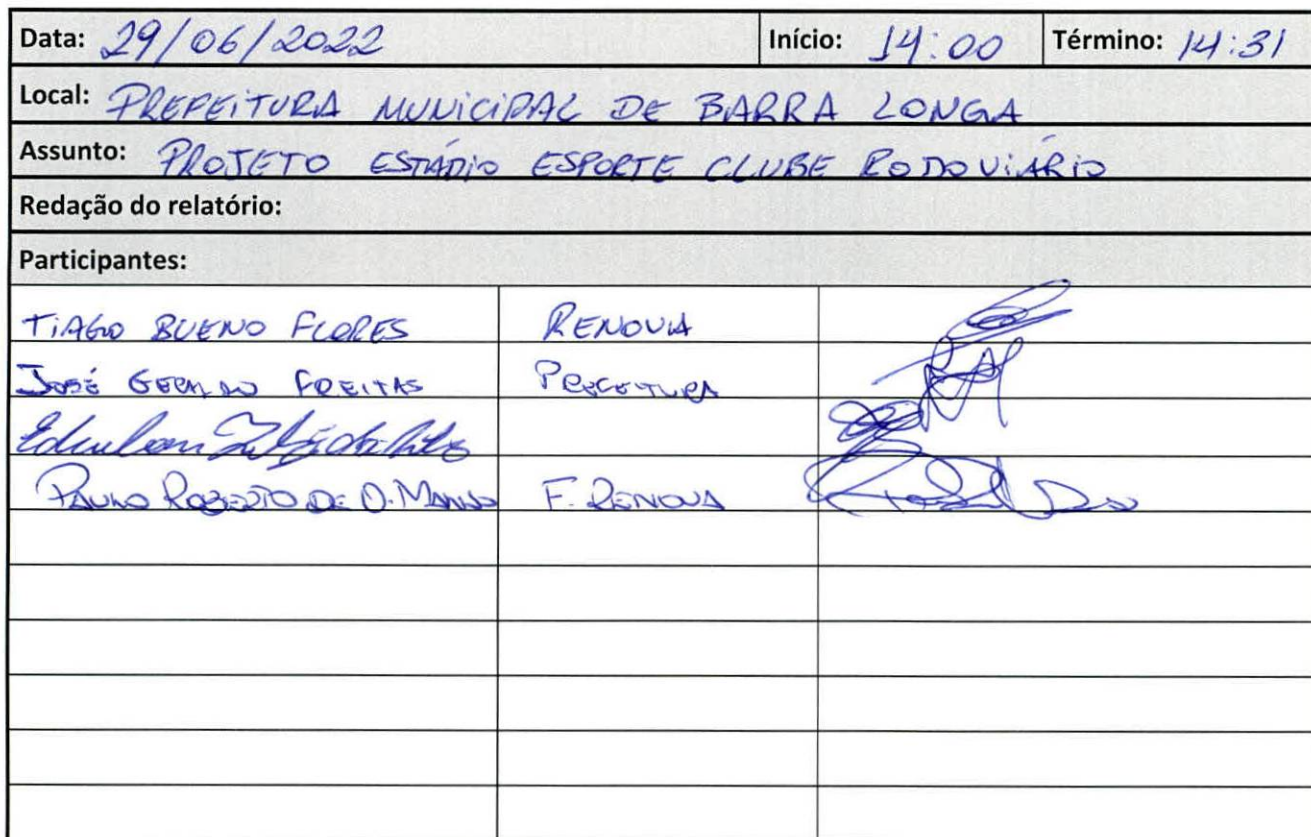 Data: 29/06/2022 Início: 14:00 Término: 14:31
Local: PREFEITURA MUNICIPAL DE BARRA LONGA
Assunto: PROJETO ESTÁDIO ESPORTE CLUBE RODOVIÁRIO
Redação do relatório:
Participantes:
TIAGO BUENO FLORES RENOVA
JOSÉ GERALDO FREITAS PREFEITURA
PAULO ROBERTO DE O. F. RENOVA